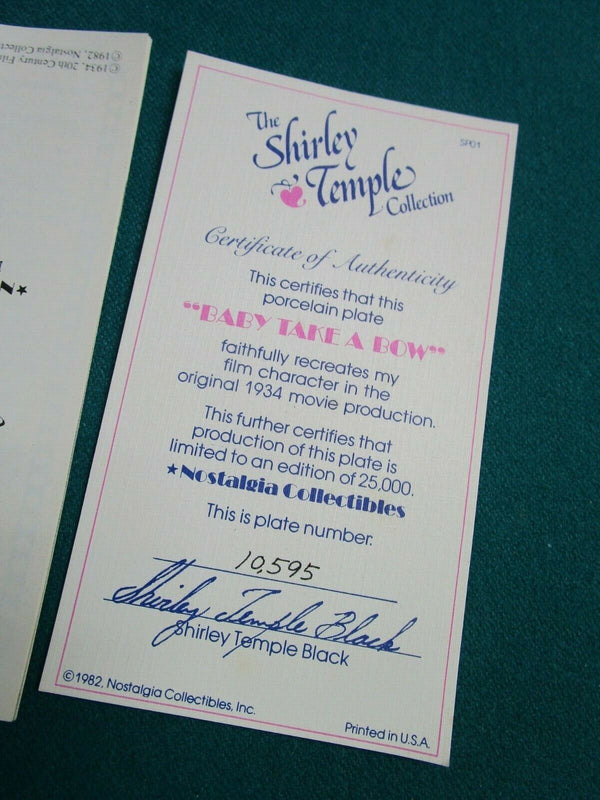 ©1982, Nostalgia Collecti
©1934, 20th Century Fil
The
Shirley
Temple
Collection
SP01
Certificate of Authenticity
This certifies that this
porcelain plate
“BABY TAKE A BOW”
faithfully recreates my
film character in the
original 1934 movie production.
This further certifies that
production of this plate is
limited to an edition of 25,000.
★Nostalgia Collectibles
This is plate number:
10,595
Shirley Temple Black
Shirley Temple Black
©1982, Nostalgia Collectibles, Inc.
Printed in U.S.A.